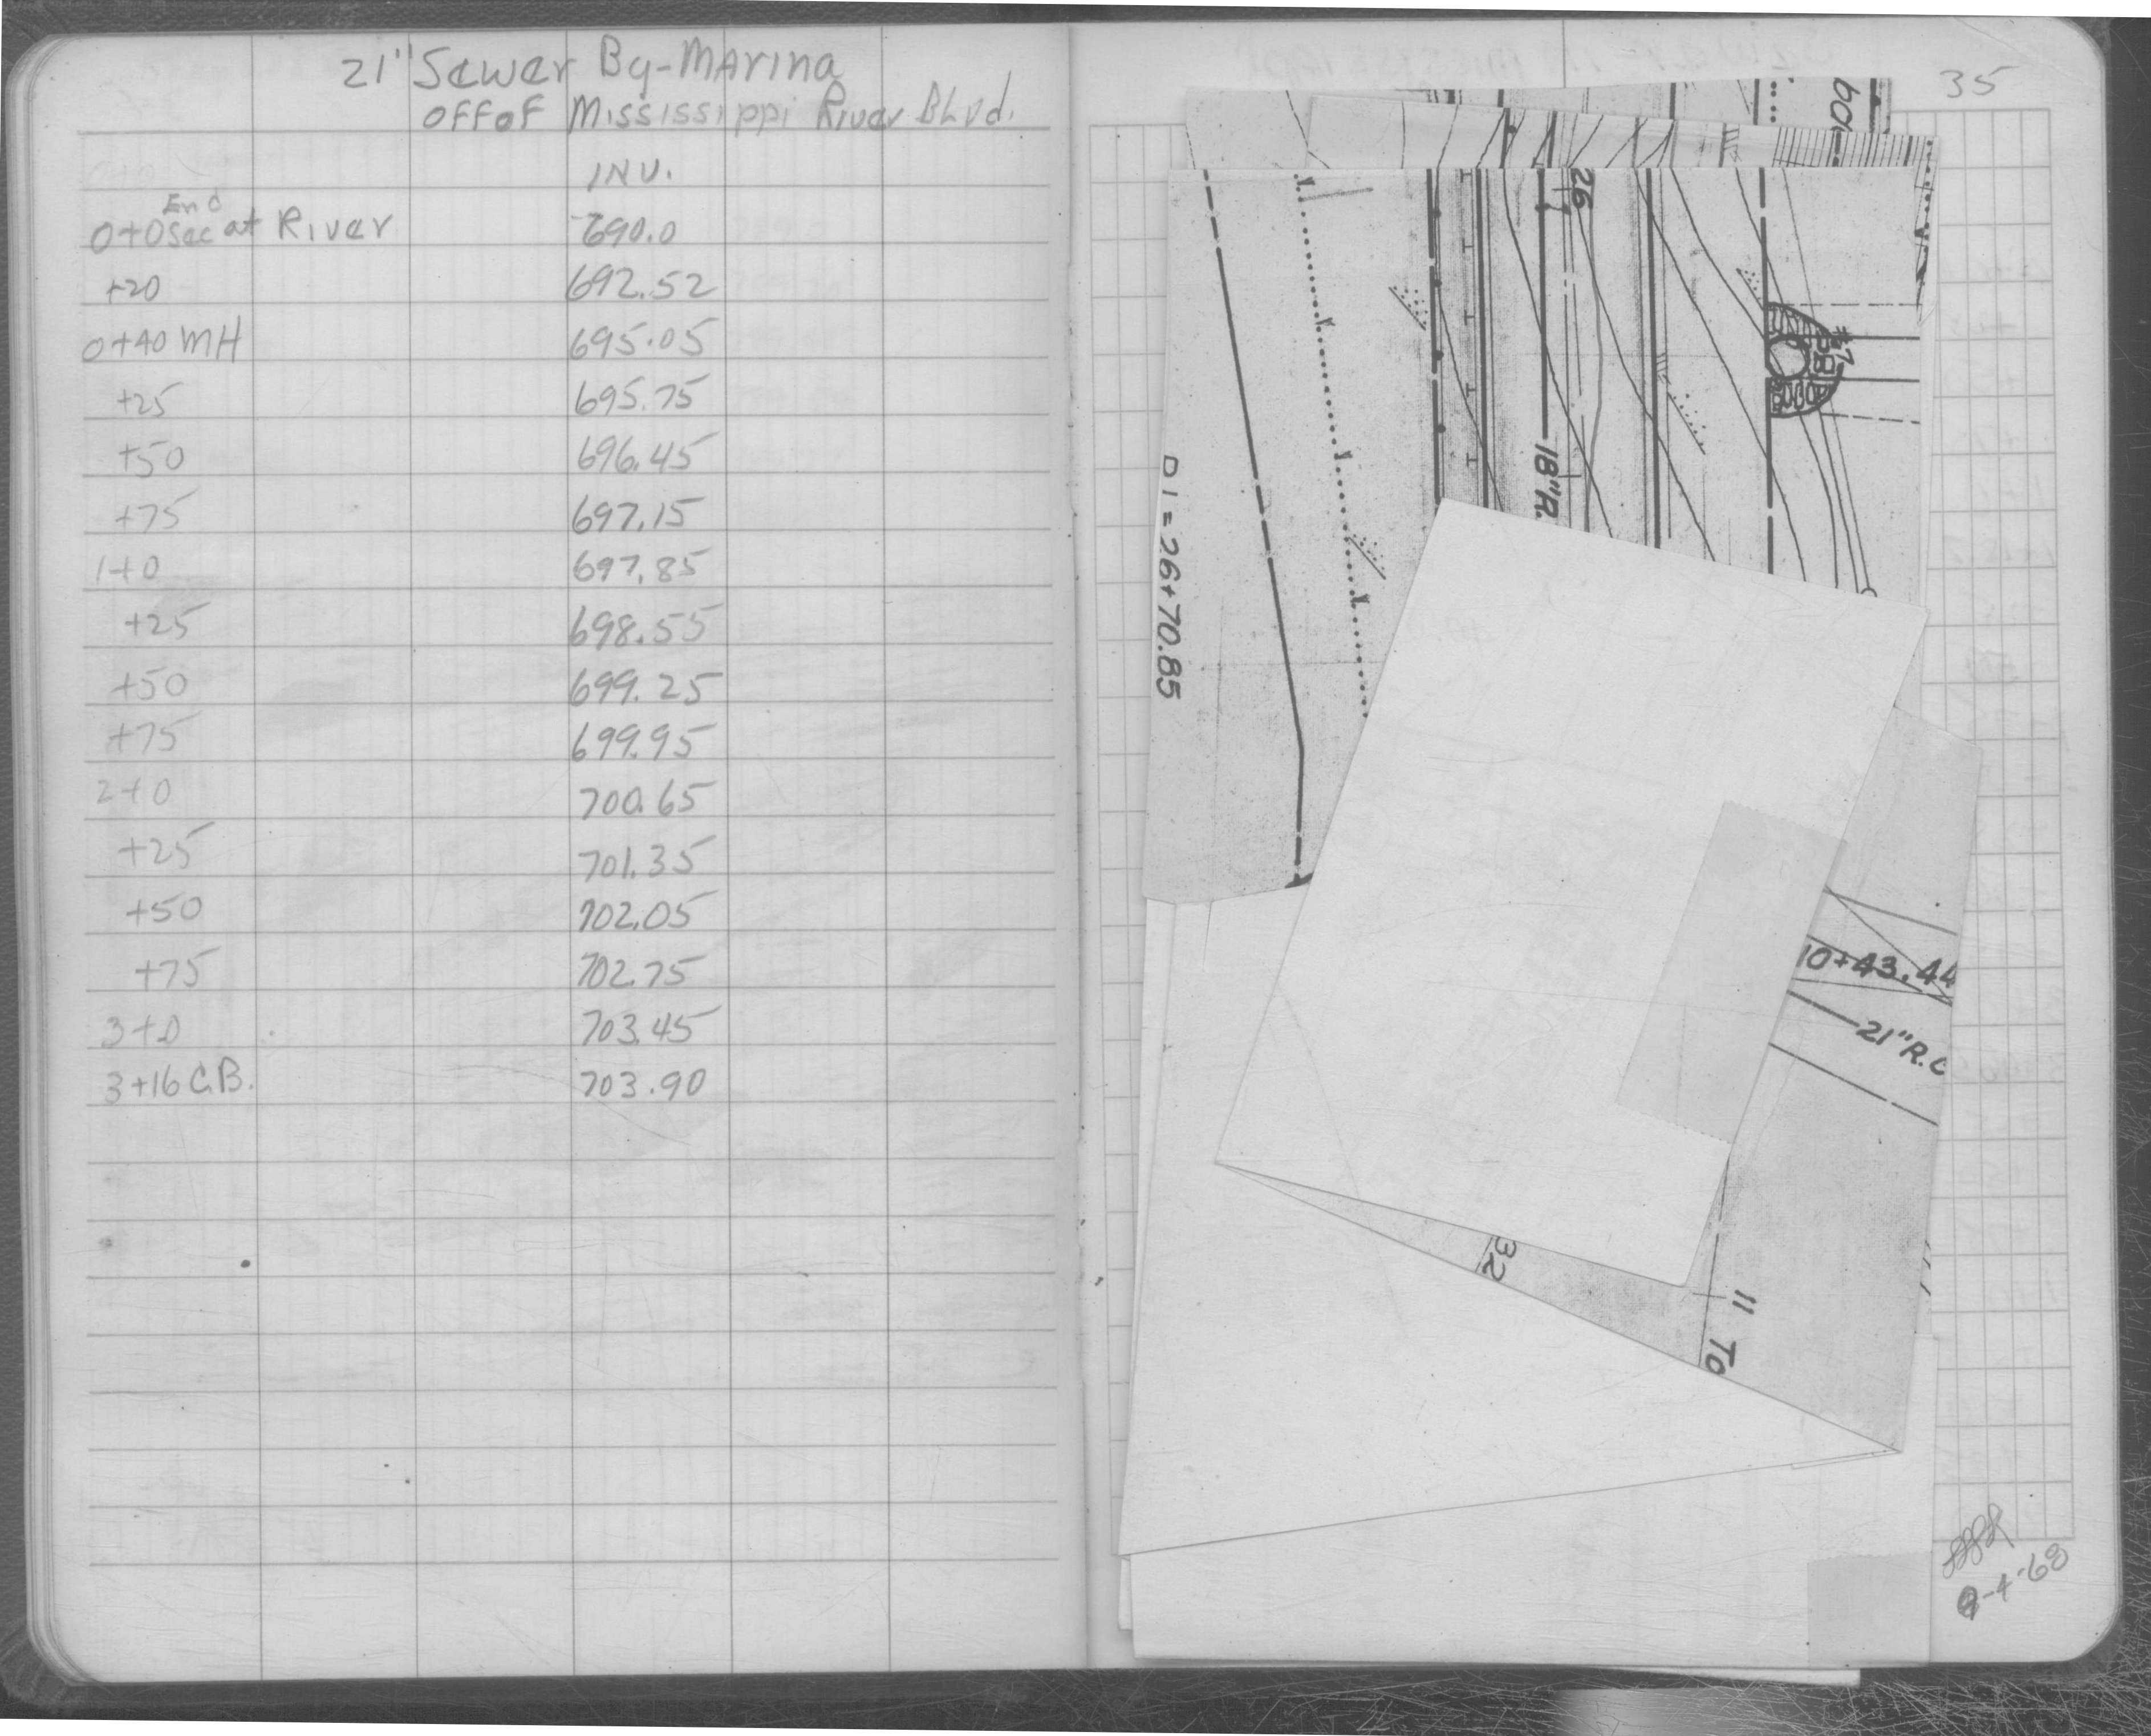 21" Sewer By-Marina
OFF OF Mississippi River Blvd.
INV.
0+0 End Sec at River 690.0
+20 692.52
0+40 MH 695.05
+25 695.75
+50 696.45
+75 697.15
1+0 697.85
+25 698.55
+50 699.25
+75 699.95
2+0 700.65
+25 701.35
+50 702.05
+75 702.75
3+0 703.45
3+16 C.B. 703.90
35
26
18"R.
#7
P I = 26+70.85
10+43.44
21" R.C
32
11
To
9-4-68